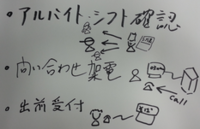 ・アルバイトシフト確認
・問い合わせ架電
call
・出前受付